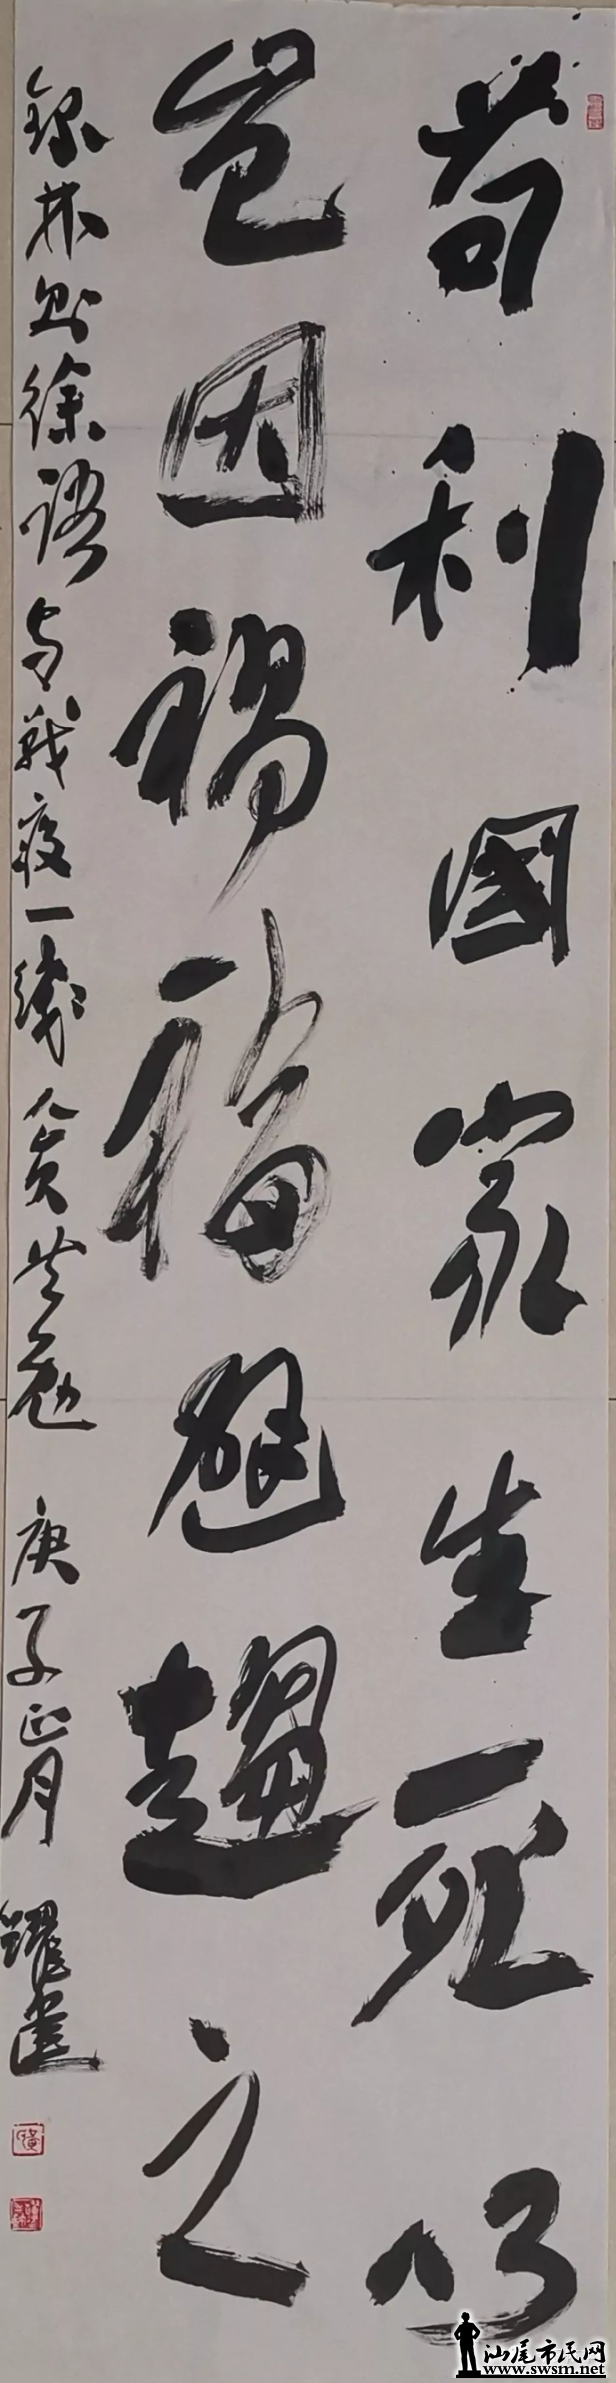 苟利國家生死以
豈因禍福避趨之
錄林则徐语与战疫一线人员共勉
庚子正月
汕尾市民网
www.swsm.net